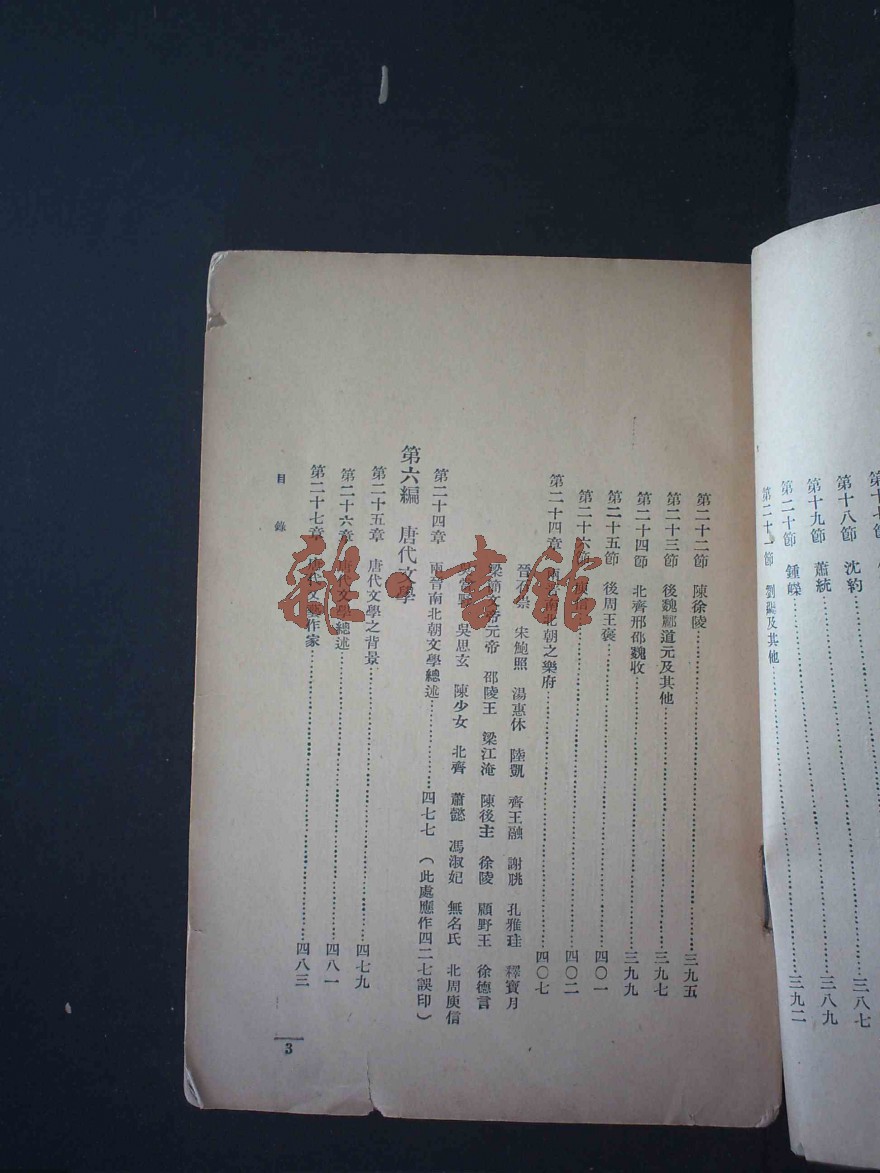 第十八節 沈約……三八七
第十九節 蕭統……三八九
第二十節 鍾嶸……三九二
第二十一節 劉勰及其他
第二十二節 陳徐陵……三九五
第二十三節 後魏酈道元及其他……三九七
第二十四節 北齊邢邵魏收……三九九
第二十五節 後周王褒……四〇一
第二十六節……四〇二
第二十四章 兩晉南北朝之樂府……四〇七
晉石崇 宋鮑照 湯惠休 陸凱 齊王融 謝朓 孔雅珪 釋寶月
梁簡文帝元帝 邵陵王 梁江淹 陳後主 徐陵 顧野王 徐德言
吳思玄 陳少女 北齊 蕭慤 馮淑妃 無名氏 北周庾信
第二十四章 兩晉南北朝文學總述……四七七(此處應作四二七誤印)
第六編 唐代文學
第二十五章 唐代文學之背景……四七九
第二十六章 唐代文學總述……四八一
第二十七章 唐代文藝作家……四八三
目錄
3
雜·書館